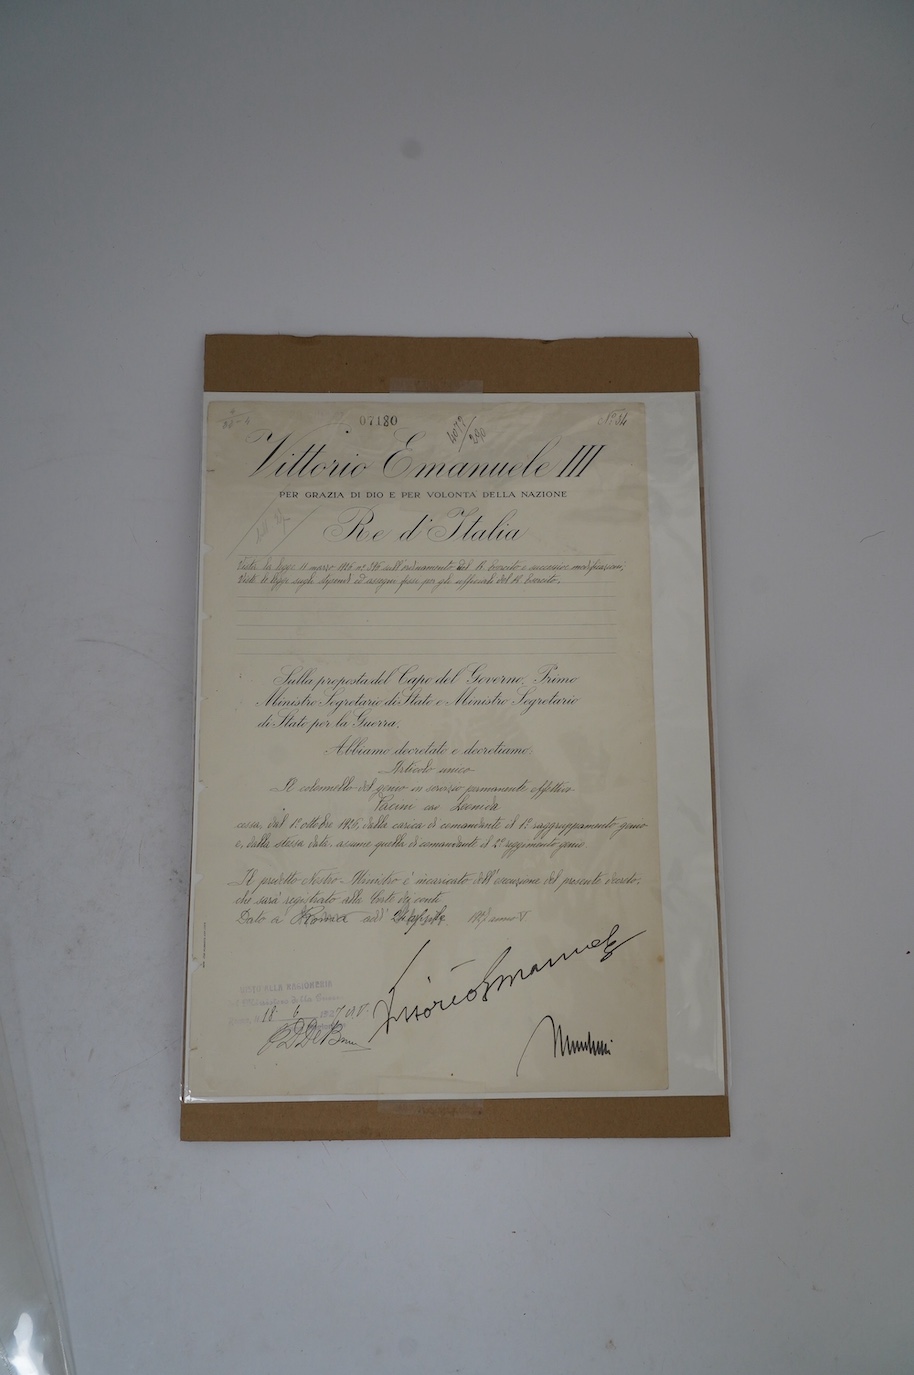 07180
4079/290
N° 34
Vittorio Emanuele III
PER GRAZIA DI DIO E PER VOLONTÀ DELLA NAZIONE
Re d'Italia
Vista la legge 11 marzo 1926 n° 396 sull'ordinamento del R. Esercito e successive modificazioni;
Viste le legge sugli stipendi ed assegni fissi per gli ufficiali del R. Esercito.
Sulla proposta del Capo del Governo, Primo
Ministro Segretario di Stato e Ministro Segretario
di Stato per la Guerra;
Abbiamo decretato e decretiamo:
Articolo unico
Il colonnello del genio in servizio permanente effettivo
cav Leonida
cessa, dal 1° ottobre 1926, dalla carica di comandante il 1° raggruppamento genio
e, dalla stessa data, assume quella di comandante il 2° reggimento genio.
Il predetto Nostro Ministro è incaricato dell'esecuzione del presente decreto,
che sarà registrato alla Corte dei conti
Dato a Roma addì 1927 anno V.
Vittorio Emanuele
VISTO ALLA RAGIONERIA
del Ministero della Guerra
Roma, li 18 6 1927 A.V.
Mussolini